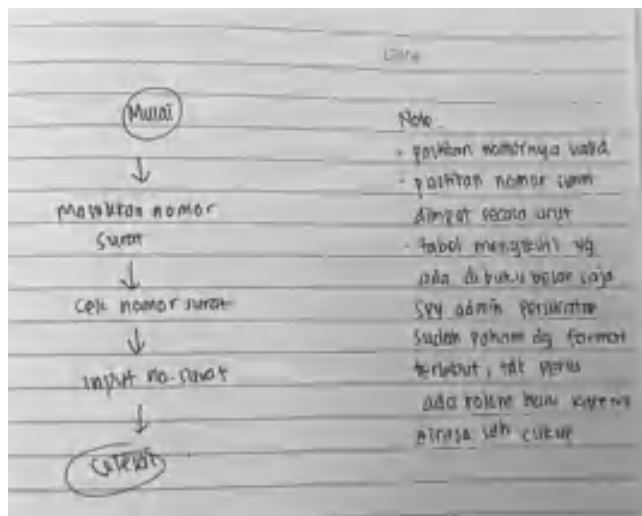 Mulai
Masukkan nomor
surat
Cek nomor surat
Input no. surat
Selesai
Note
- pastikan nomornya valid
- pastikan nomor surat
secara urut
- tabel mengikuti yg
ada di buku besar saja
spy admin
sudah paham dg format
tersebut, tdk perlu
ada kolom baru karena
dirasa sdh cukup